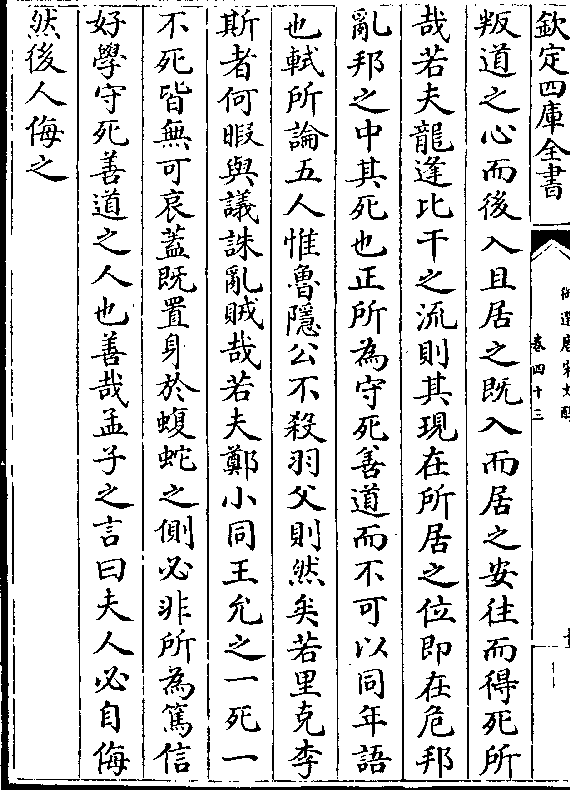 欽定四庫全書
御選唐宋文醇
卷四十三
叛道之心而後入且居之既入而居之安往而得死所
哉若夫龍逢比干之流則其現在所居之位即在危邦
亂邦之中其死也正所為守死善道而不可以同年語
也軾所論五人惟魯隱公不殺羽父則然矣若里克李
斯者何暇與議誅亂賊哉若夫鄭小同王允之一死一
不死皆無可哀蓋既置身於蝮蛇之側必非所為篤信
好學守死善道之人也善哉孟子之言曰夫人必自侮
然後人侮之